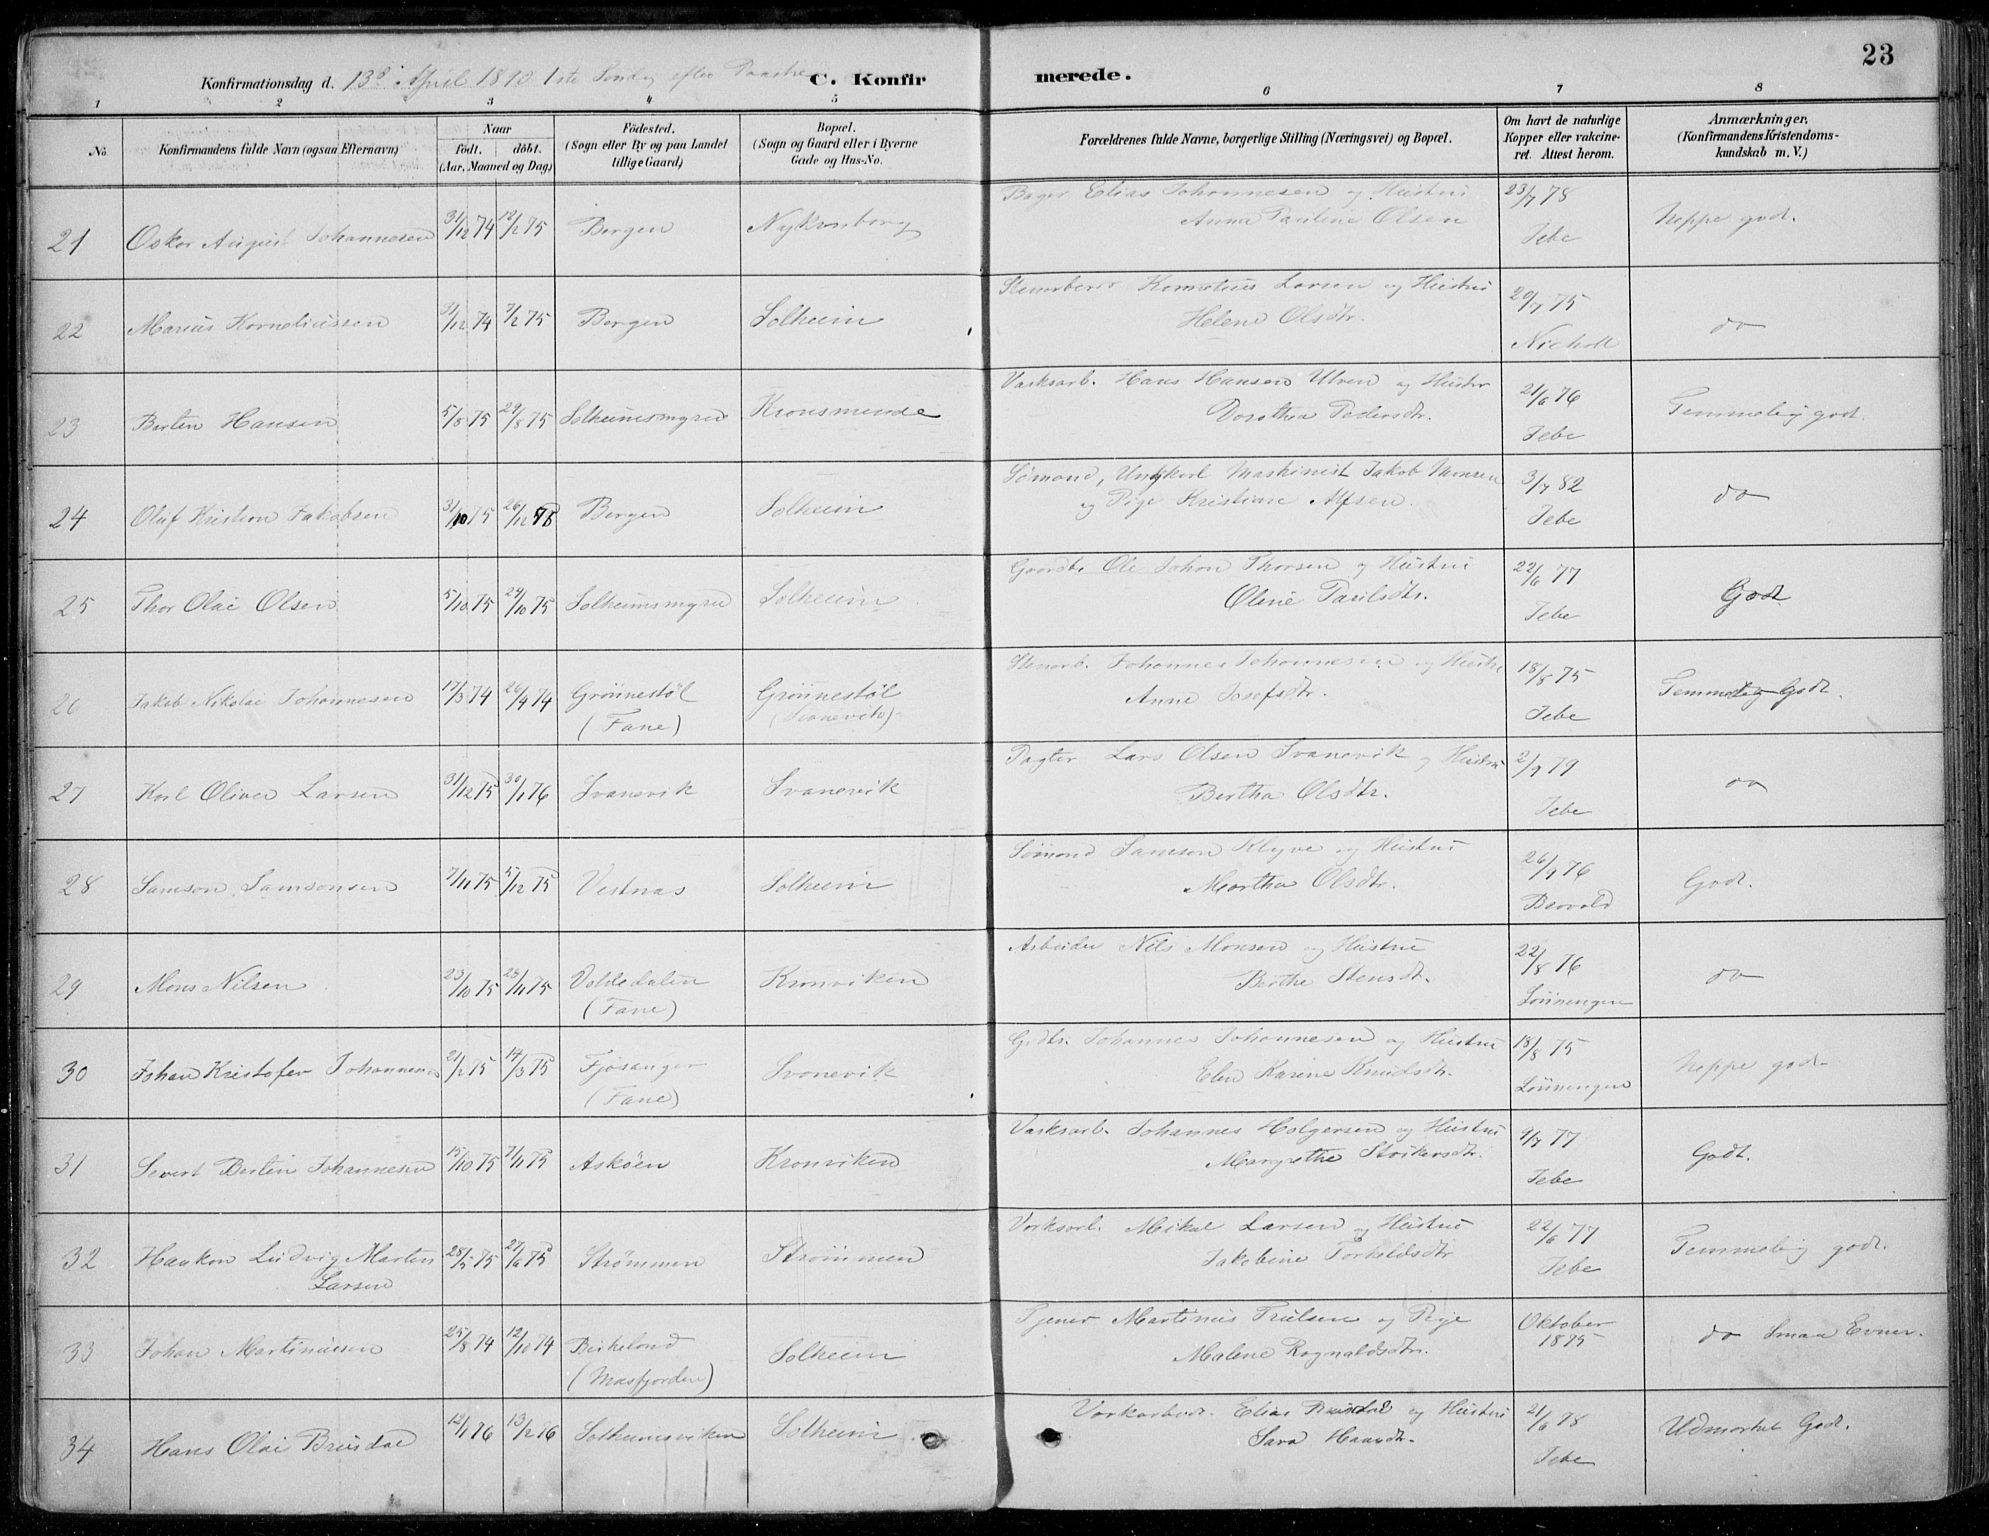 23
Konfirmationsdag d. 13de April 1890 1ste Søndag efter Paaske C. Konfirmerede.
1 2 3 4 5 6 7 8
No. Konfirmandens fulde Navn (ogsaa Efternavn) Naar födt. döbt. (Aar, Maaned og Dag) Födested. (Sogn eller By og paa Landet tillige Gaard) Bopæl. (Sogn og Gaard eller i Byerne Gade og Hus-No. Forældrenes fulde Navne, borgerlige Stilling (Næringsvei) og Bopæl. Om havt de naturlige Kopper eller vakcineret. Attest herom. Anmærkninger, (Konfirmandens Kristendomskundskab m. V.)
21 Oskar August Johannesen 31/12 74 12/2 75 Bergen Nykronborg Bager Elias Johannesen og Hustru Anna Pauline Olsen 23/7 78 Jebe Neppe godt.
22 Marius Korneliussen 31/12 74 7/2 75 Bergen Solheim Kornelius Larsen og Hustru Helene Olsdtr. 20/7 75 Nicholl do
23 Bertin Hansen 5/8 75 29/8 75 Solheimsmyren Kronsminde Værksarb. Hans Hansen Ulven og Hustru Dorothea Pedersdtr. 21/6 76 Jebe Temmelig godt.
24 Oluf Kristian Jakobsen 31/10 75 26/12 75 Bergen Solheim Sømand, Ungkarl Maskinist Jakob Monsen og Pige Kristiane Alfsen. 3/7 82 Jebe do
25 Thor Olai Olsen 5/10 75 24/10 75 Solheimsmyren Solheim Gaardbr. Ole Johan Thorsen og Hustru Oline Paulsdtr. 22/6 77 Jebe Godt
26 Jakob Nikolai Johannesen 17/3 74 26/4 74 Grönnestøl (Fane) Grönnestøl (Svanevik) Stenarb. Johannes Johannesen og Hustru Anne Josefsdtr. 18/8 75 Jebe Temmelig Godt.
27 Karl Oliver Larsen 31/12 75 30/1 76 Svanevik Svanevik Pagter Lars Olsen Svanevik og Hustru Bertha Olsdtr. 2/9 79 Jebe do
28 Samson Samsonsen 7/11 75 5/12 75 Vestnæs Solheim Sømand Samson Kleyve og Hustru Martha Olsdtr. 26/9 76 Brovold Godt.
29 Mons Nilsen 23/10 75 28/11 75 (Fane) Kronviken Arbeider Nils Monsen og Hustru Berthe Stensdtr. 22/8 76 Lönningen do
30 Johan Kristofer Johannesen 21/2 75 14/3 75 Fjøsanger (Fane) Svanevik Johannes Johannesen og Hustru Elen Karine Knudsdtr. 18/8 75 Lönningen Neppe godt
31 Severt Bertin Johannesen 15/10 75 7/11 75 Askøen Kronviken Værksarb. Johannes Holgersen og Hustru Margrethe 9/7 77 Jebe Godt.
32 Haakon Ludvig Martin Larsen 28/5 75 27/6 75 Strømmen Strömmen Værksarb. Mikal Larsen og Hustru Jakobine Torkeldsdtr 22/6 77 Jebe Temmelig godt.
33 Johan Martinussen 25/8 74 12/10 74 Birkeland (Masfjorden) Solheim Tjener Martinus Trulsen og Pige Malene Rognaldsdtr. Oktober 1875 do Smaa Evner.
34 Hans Olai Brusdal 12/1 76 13/2 76 Solheimsviken Solheim Værksarbeid. Elias Brusdal og Hustru Sara 21/6 78 Jebe Udmærket Godt.